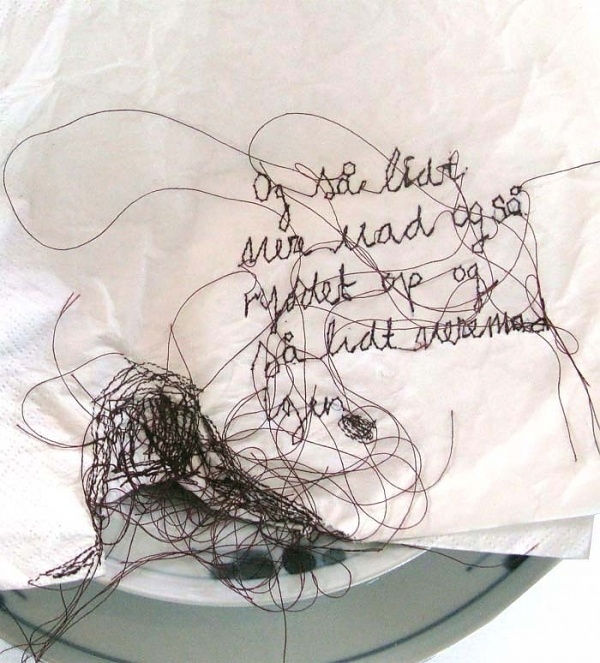 Og så lidt
mere mad og så
ryddet op og
så lidt mere mad
igen